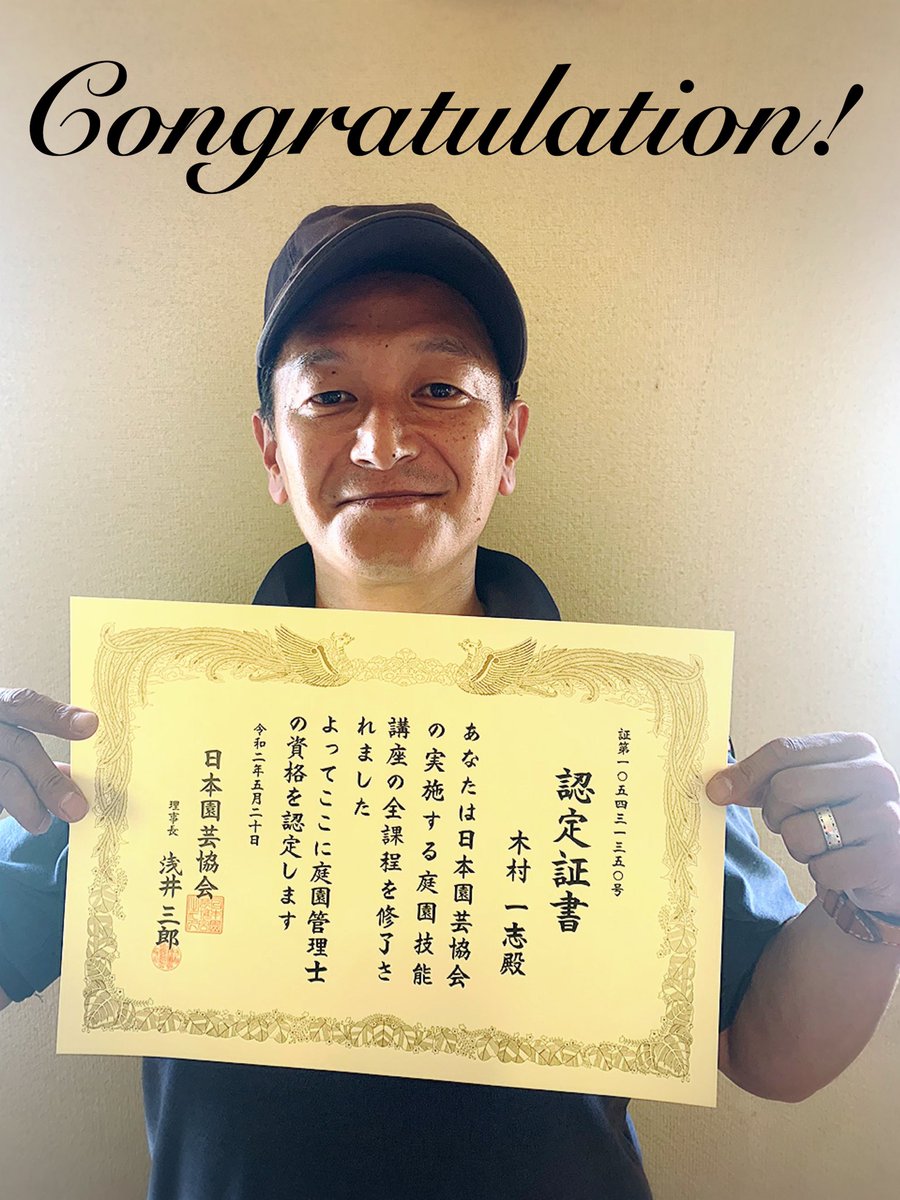 Congratulation!
証第一〇五四三一三五〇号
認定証書
木村 一志殿
あなたは日本園芸協会
の実施する庭園技能
講座の全課程を修了さ
れました
よってここに庭園管理士
の資格を認定します
令和二年五月二十日
日本園芸協会
理事長 浅井三郎